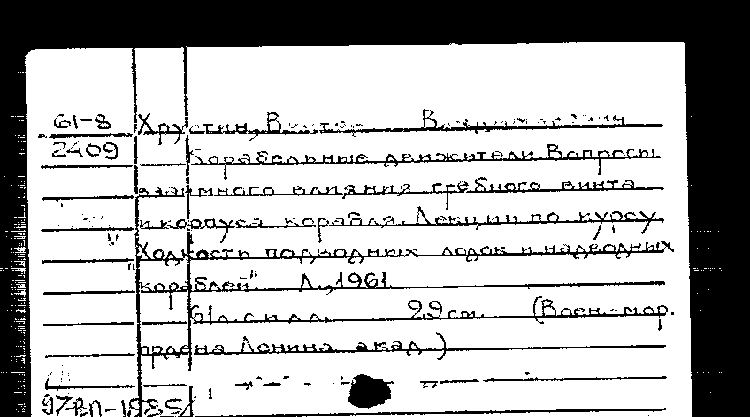 61-8 Хрустин, Виктор Владимирович
2409 Корабельные движители. Вопросы
взаимного влияния гребного винта
и корпуса корабля. Лекции по курсу
"Ходкость подводных лодок и надводных
кораблей" Л., 1961
61л. с илл. 29 см. (Воен.-мор.
ордена Ленина акад.)
97-ВП-1585